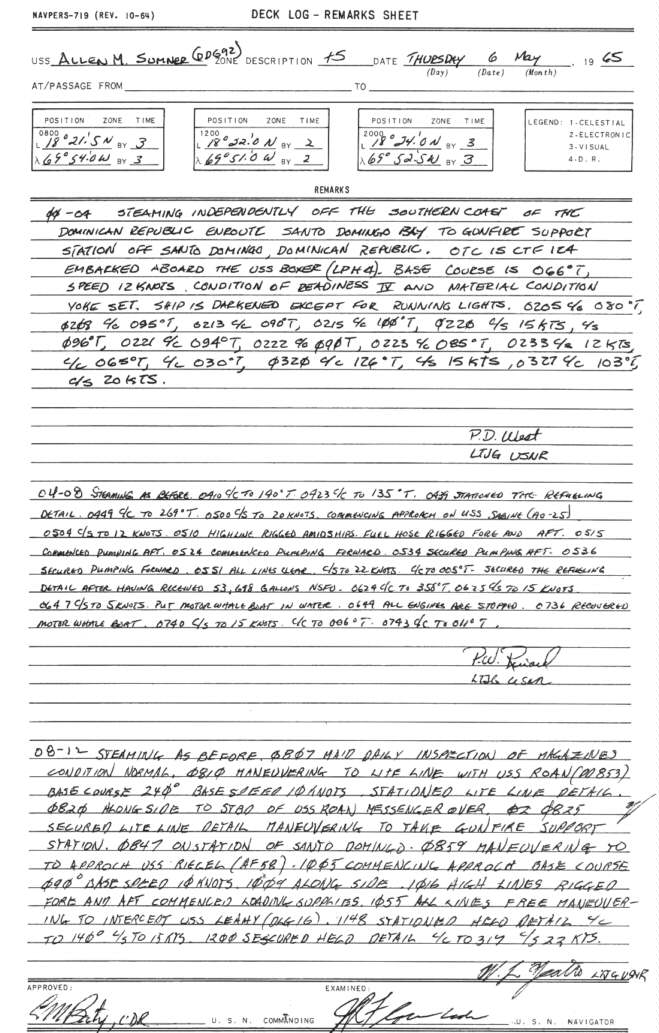 NAVPERS-719 (REV. 10-64) DECK LOG – REMARKS SHEET
USS ALLEN M. SUMNER (DD692) ZONE DESCRIPTION +5 DATE THURSDAY 6 May , 19 65
(Day) (Date) (Month)
AT/PASSAGE FROM TO
POSITION ZONE TIME
0800
L 18°21.5 N BY 3
λ 69°54.0 W BY 3
POSITION ZONE TIME
1200
L 18°22.0 N BY 2
λ 69°51.0 W BY 2
POSITION ZONE TIME
2000
L 18°24.0 N BY 3
λ 69°52.5 W BY 3
LEGEND: 1-CELESTIAL
2-ELECTRONIC
3-VISUAL
4-D. R.
REMARKS
00-04 STEAMING INDEPENDENTLY OFF THE SOUTHERN COAST OF THE
DOMINICAN REPUBLIC ENROUTE SANTO DOMINGO BAY TO GUNFIRE SUPPORT
STATION OFF SANTO DOMINGO, DOMINICAN REPUBLIC. OTC IS CTF 124
EMBARKED ABOARD THE USS BOXER (LPH4). BASE COURSE IS 066°T,
SPEED 12 KNOTS. CONDITION OF READINESS IV AND MATERIAL CONDITION
YOKE SET. SHIP IS DARKENED EXCEPT FOR RUNNING LIGHTS. 0205 C/C 080°T,
0208 C/C 095°T, 0213 C/C 090°T, 0215 C/C 100°T, 0220 C/S 15 KTS, C/C
096°T, 0221 C/C 094°T, 0222 C/C 090°T, 0223 C/C 085°T, 0233 C/S 12 KTS,
C/C 065°T, C/C 030°T, 0320 C/C 126°T, C/S 15 KTS, 0327 C/C 103°T,
C/S 20 KTS.
P.D. West
LTJG USNR
04-08 STEAMING AS BEFORE. 0410 C/C TO 140°T 0423 C/C TO 135°T. 0439 STATIONED THE REFUELING
DETAIL. 0449 C/C TO 269°T. 0500 C/S TO 20 KNOTS. COMMENCING APPROACH ON USS SABINE (AO-25)
0504 C/S TO 12 KNOTS. 0510 HIGHLINE RIGGED AMIDSHIPS. FUEL HOSE RIGGED FORE AND AFT. 0515
COMMENCED PUMPING AFT. 0524 COMMENCED PUMPING FORWARD. 0534 SECURED PUMPING AFT. 0536
SECURED PUMPING FORWARD. 0551 ALL LINES CLEAR. C/S TO 22 KNOTS. C/C TO 005°T. SECURED THE REFUELING
DETAIL AFTER HAVING RECEIVED 53,698 GALLONS NSFO. 0624 C/C TO 355°T. 0625 C/S TO 15 KNOTS
0647 C/S TO 5 KNOTS. PUT MOTOR WHALE BOAT IN WATER. 0649 ALL ENGINES ARE STOPPED. 0736 RECOVERED
MOTOR WHALE BOAT. 0740 C/S TO 15 KNOTS. C/C TO 006°T. 0743 C/C TO 011°T.
P.W.
LTJG USNR
08-12 STEAMING AS BEFORE. 0807 MAID DAILY INSPECTION OF MAGAZINES
CONDITION NORMAL. 0810 MANEUVERING TO LITE LINE WITH USS ROAN (DD853)
BASE COURSE 240° BASE SPEED 10 KNOTS STATIONED LITE LINE DETAIL.
0820 ALONG SIDE TO STBD OF USS ROAN MESSENGER OVER, 0825
SECURED LITE LINE DETAIL MANEUVERING TO TAKE GUNFIRE SUPPORT
STATION. 0847 ON STATION OF SANTO DOMINGO. 0859 MANEUVERING TO
TO APPROCH USS RIEGEL (AF58). 1005 COMMENCING APPROCH BASE COURSE
090° BASE SPEED 10 KNOTS. 1009 ALONG SIDE. 1016 HIGH LINES RIGGED
FORE AND AFT COMMENCED LOADING SUPPLIES. 1055 ALL LINES FREE MANEUVER-
ING TO INTERCEPT USS LEAHY (DLG16). 1148 STATIONED HELO DETAIL C/C
TO 140° C/S TO 15 KTS. 1200 SESCURED HELO DETAIL C/C TO 317 C/S 22 KTS.
LTJG USNR
APPROVED: EXAMINED:
CDR U. S. N. COMMANDING U. S. N. NAVIGATOR